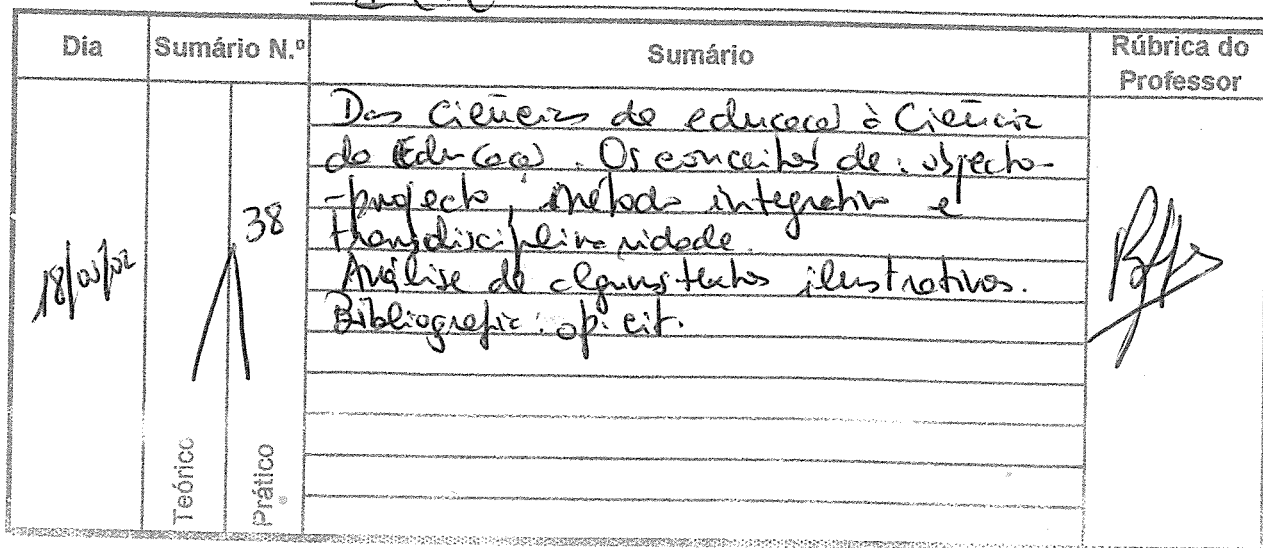 Dia
Sumário N.º
Sumário
Rúbrica do
Professor
Das Ciências da educação à Ciência
da Educação. Os conceitos de: objecto-
-projecto, método integrativo e
transdisciplinaridade.
Análise de alguns textos ilustrativos.
Bibliografia: op. cit.
38
Teórico
Prático